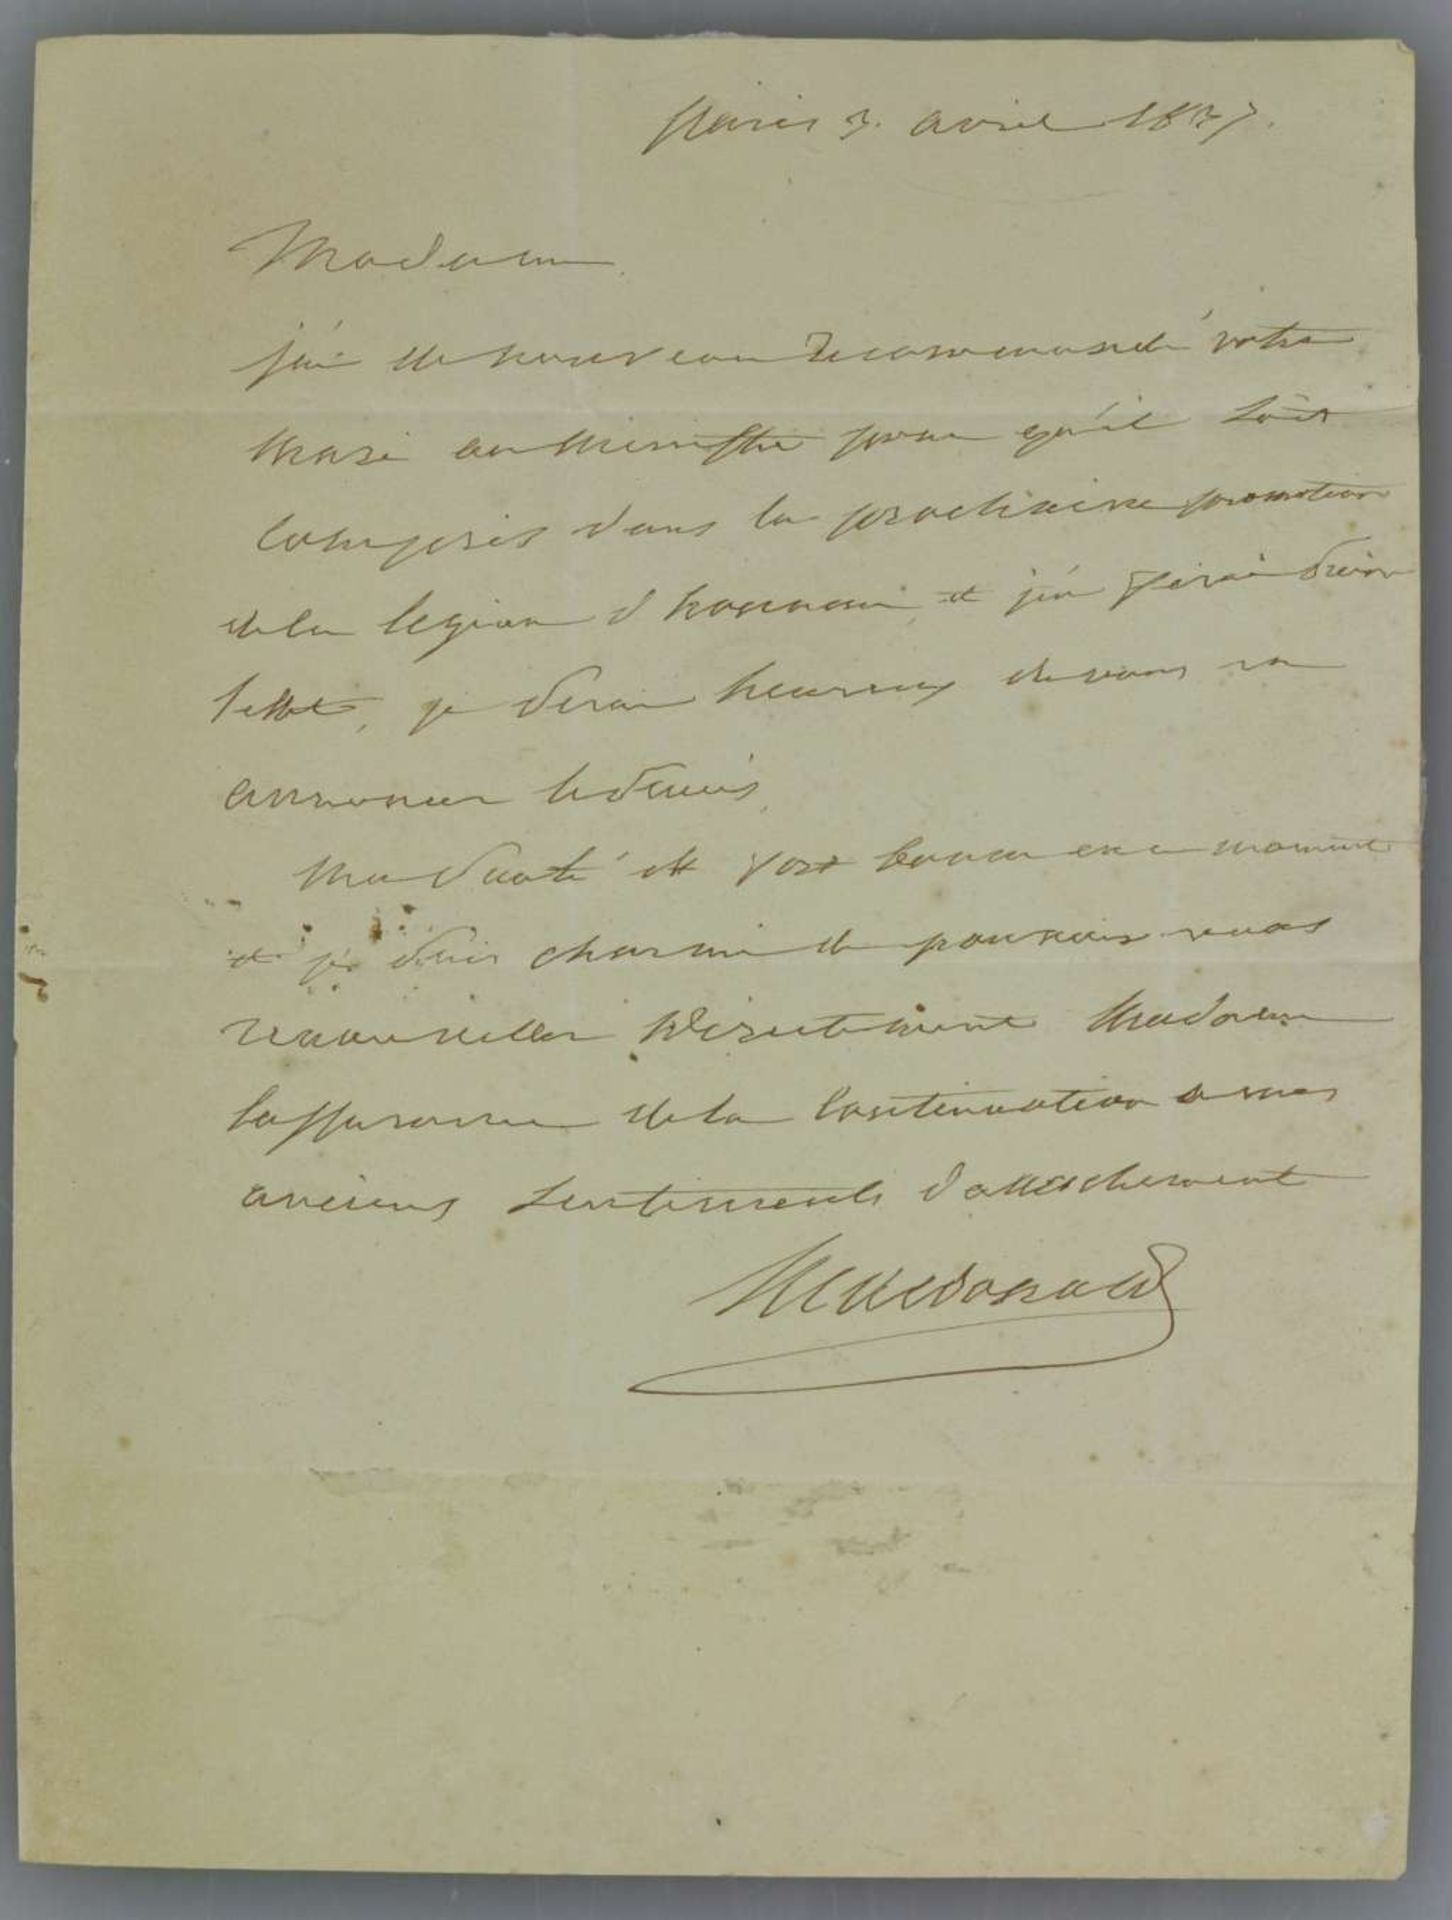 Paris 3. avril 1837.
Madame
j'ai de nouveau recommandé votre
mari au ministre pour qu'il soit
compris dans la prochaine promotion
de la legion d honneur, et j'en
lettre, je serai heureux de vous en
annoncer le succès.
Ma santé est fort bonne en ce moment
et je suis charmé de pouvoir vous
renouveller directement Madame
lassurance de la Continuation de mes
anciens sentiments d attachement
Macdonald